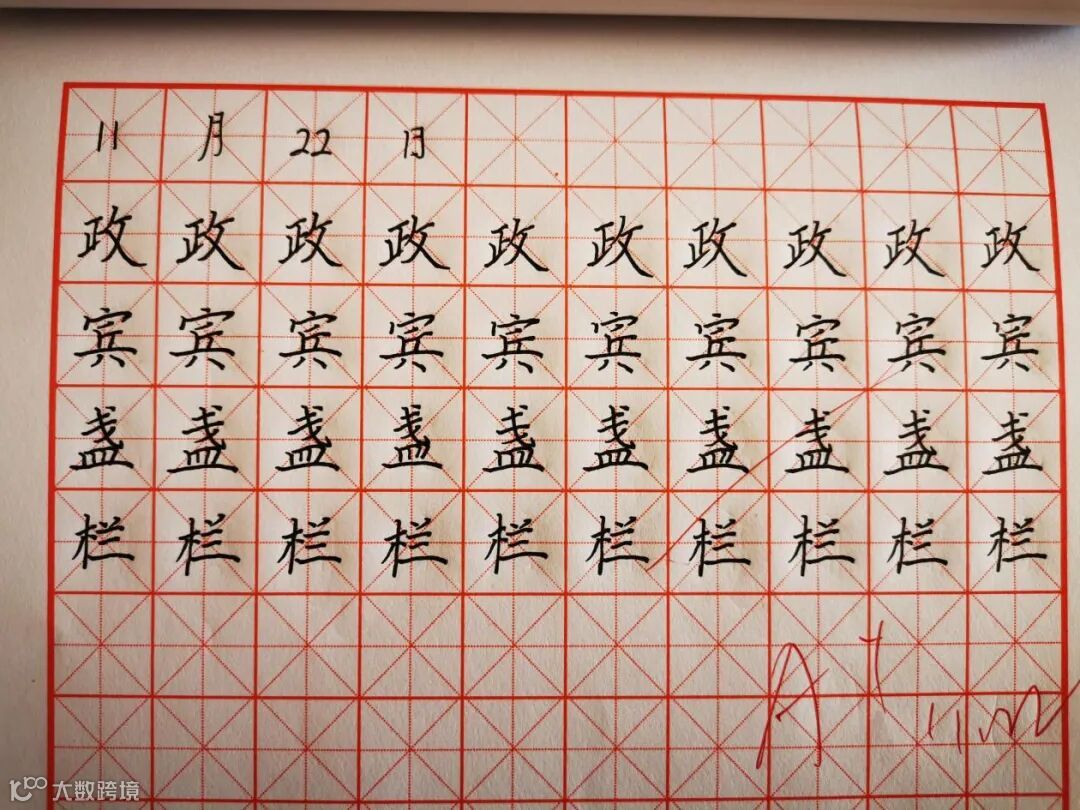 11月22日
政政政政政政政政政政
宾宾宾宾宾宾宾宾宾宾
盏盏盏盏盏盏盏盏盏盏
栏栏栏栏栏栏栏栏栏栏
A+
大数跨境